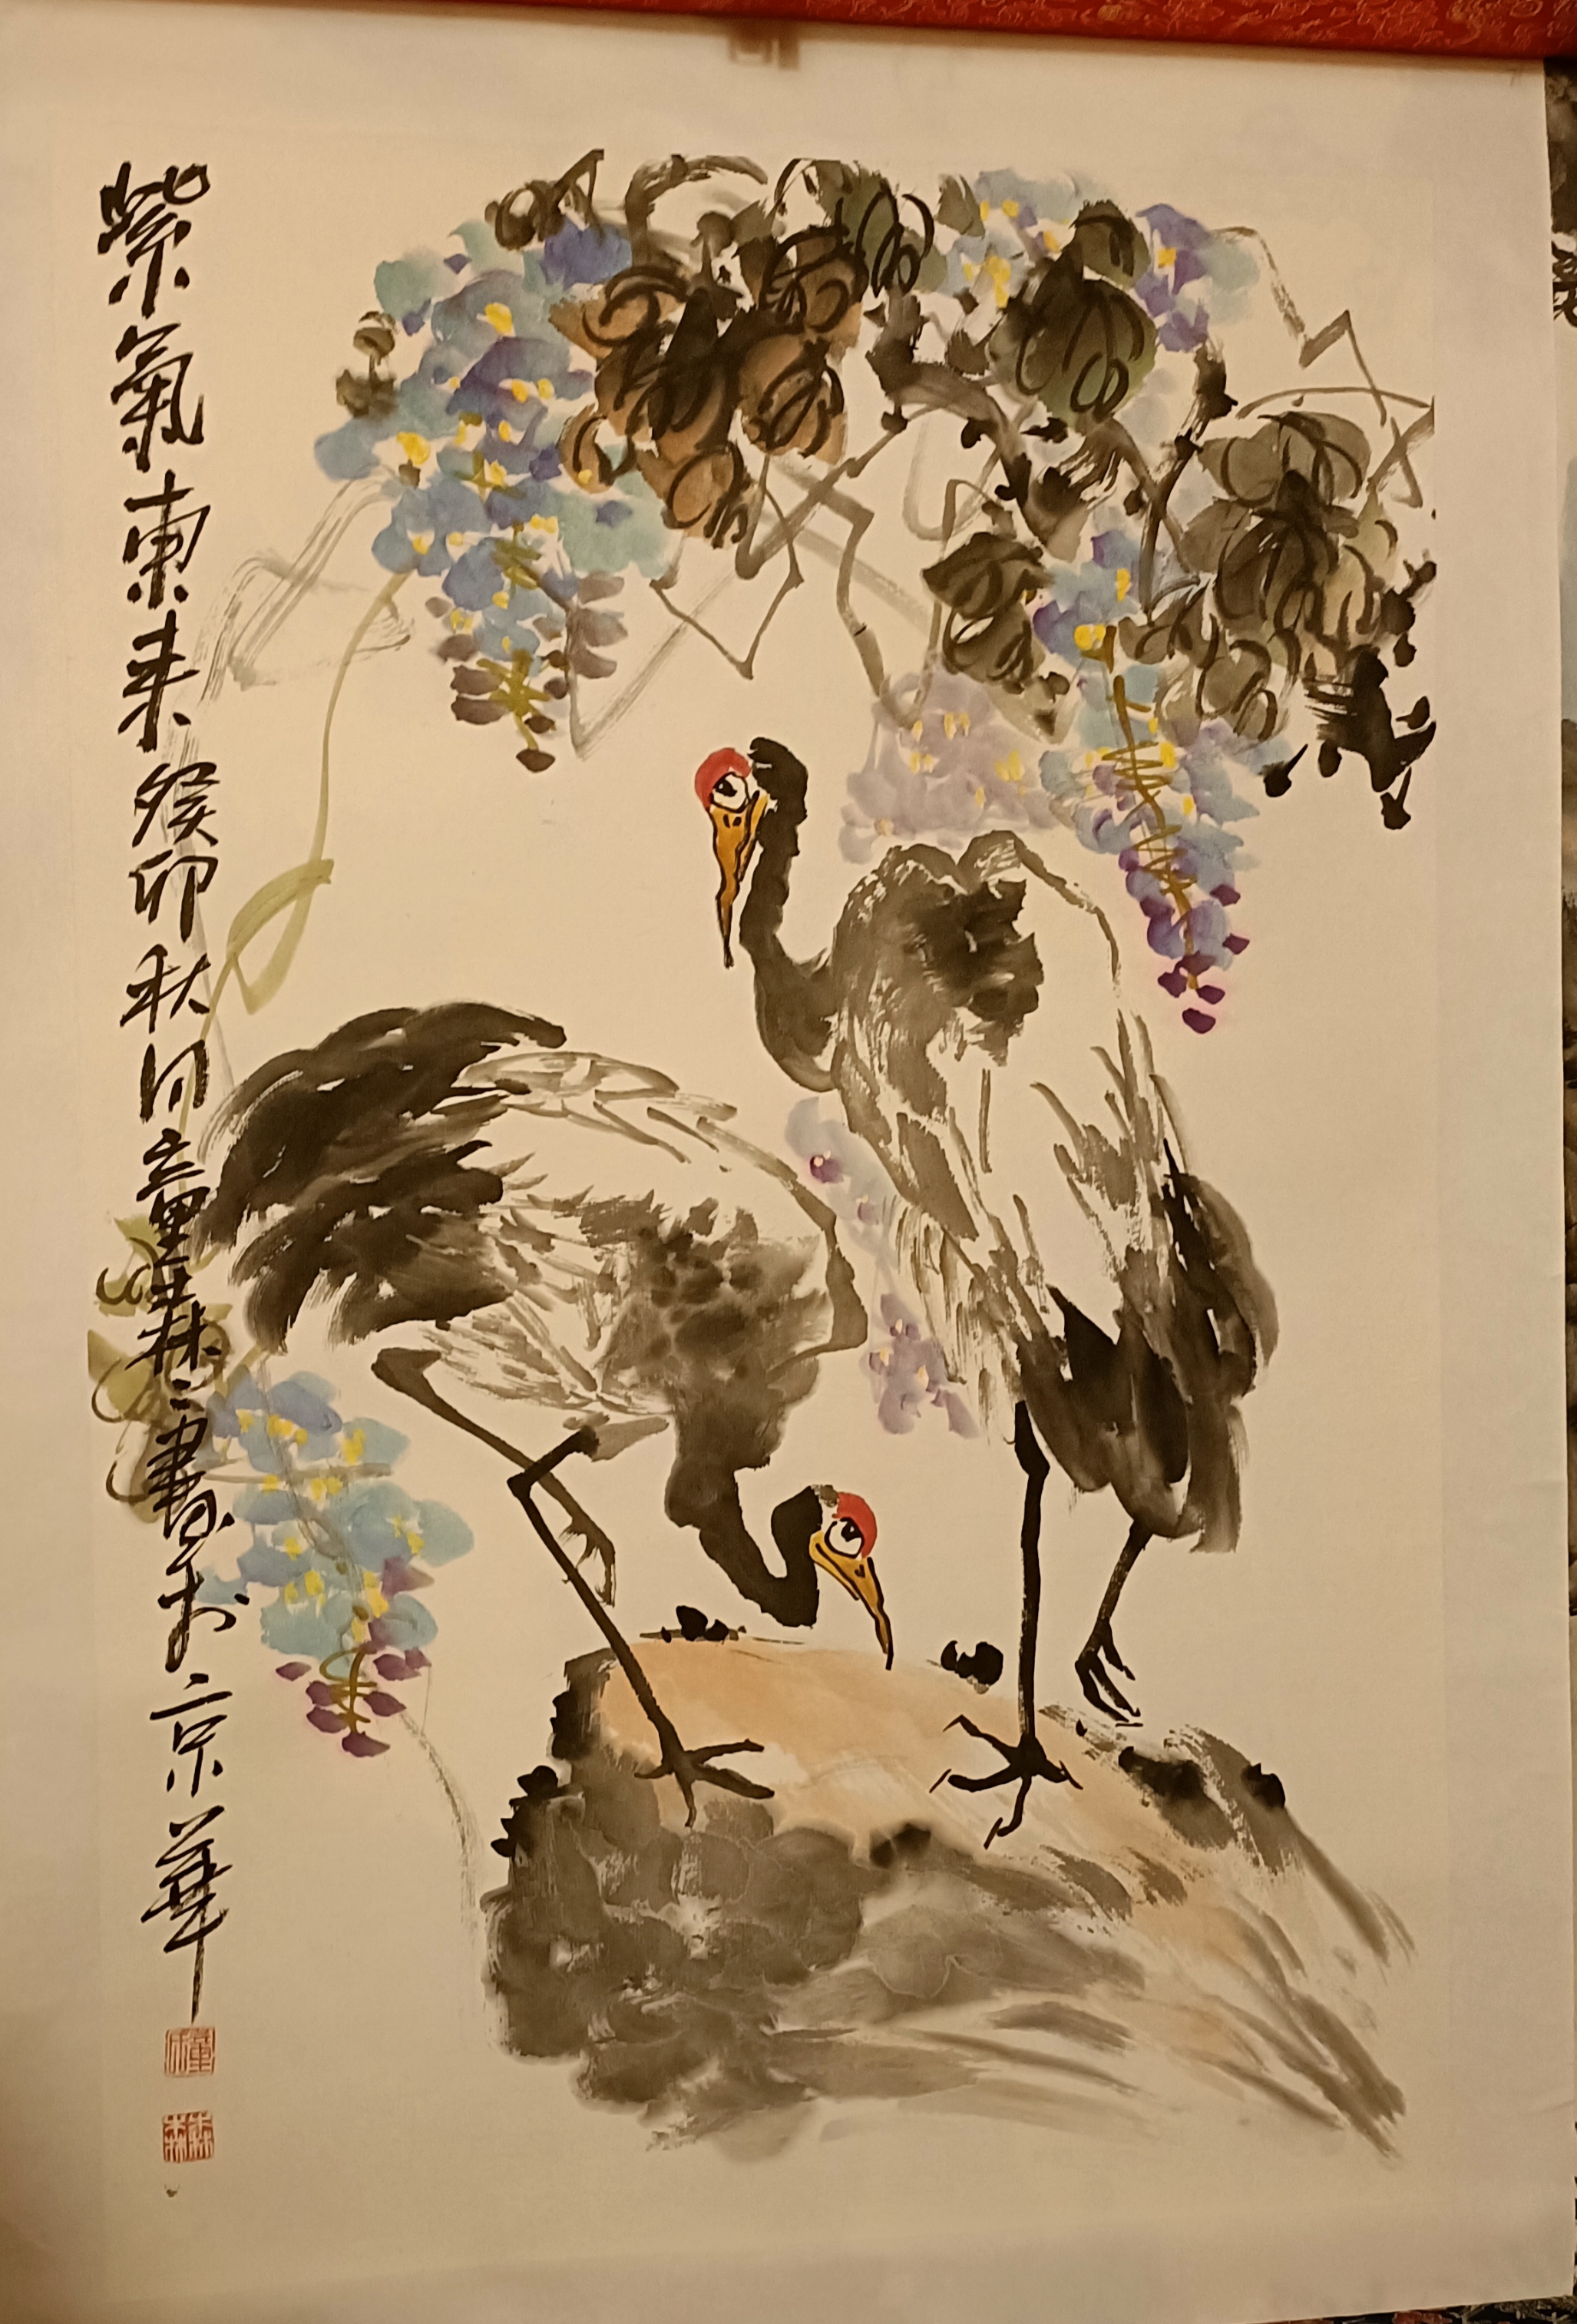 紫氣東来癸卯秋月童森〻書於京華